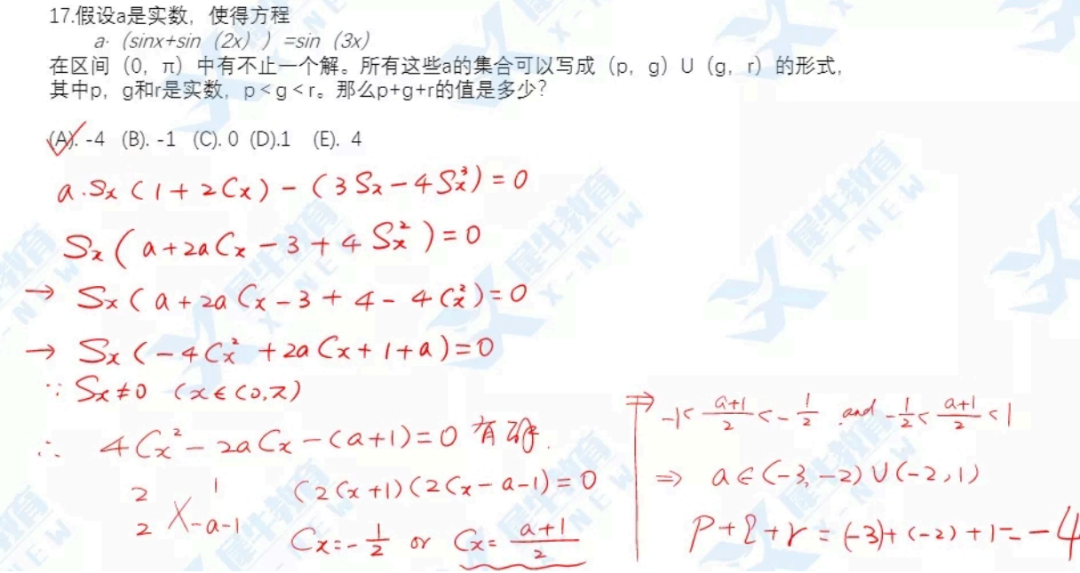 17.假设a是实数，使得方程
a·（sinx+sin（2x））=sin（3x）
在区间（0，π）中有不止一个解。所有这些a的集合可以写成（p，g）U（g，r）的形式，
其中p，g和r是实数，p＜g＜r。那么p+g+r的值是多少？
(A). -4 (B). -1 (C). 0 (D).1 (E). 4
a·Sx(1+2Cx)-(3Sx-4Sx³)=0
Sx(a+2aCx-3+4Sx²)=0
→ Sx(a+2aCx-3+4-4Cx²)=0
→ Sx(-4Cx²+2aCx+1+a)=0
∵ Sx≠0 (x∈(0,π)
∴ 4Cx²-2aCx-(a+1)=0 有解.
2 1
2 -a-1
(2Cx+1)(2Cx-a-1)=0
Cx=-1/2 or Cx=(a+1)/2
⇒ -1<(a+1)/2<-1/2 and -1/2<(a+1)/2<1
⇒ a∈(-3,-2)∪(-2,1)
p+q+r=(-3)+(-2)+1=-4
犀牛教育
X-NEW
犀牛教育
X-NEW
犀牛教育
X-NEW
犀牛教育
X-NEW